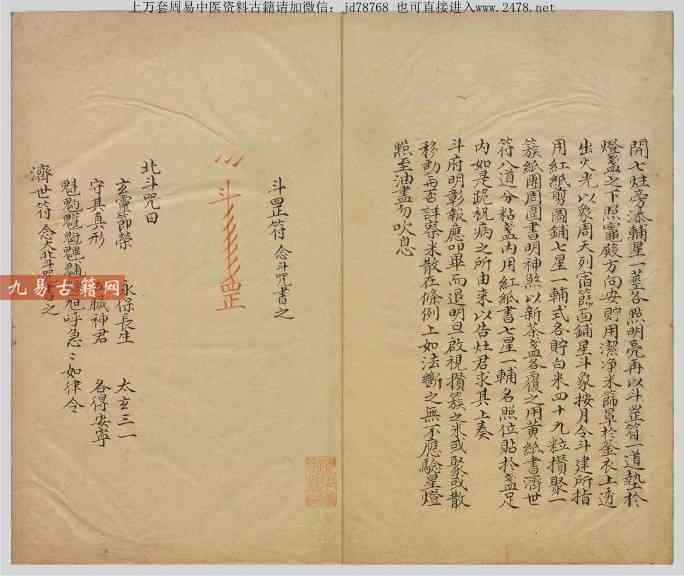 上万套周易中医资料古籍请加微信：jd78768 也可直接进入www.2478.net
開七炷旁添輔星一莖各點明亮再以斗罡符一道墊於
燈盞之下照竈殿方向安貯用潔淨米篩罩於釜衣上透
出火光以象周天列宿篩面鋪星斗象按月令斗建所指
用紅紙剪圖鋪七星一輔式各貯白米四十九粒攢聚一
簇紙圈周圍書明神煞以新茶盞各覆之用黃紙書濟世
符八道分粘盞內用紅紙書七星一輔名照位貼於盞足
內如是跪祝病之所由來以告灶君求其上奏
斗府明彰報應叩畢而退明旦啟視攢簇之米或聚或散
移動與否詳察米散在條例上如法斷之無不應驗星燈
照至油盡勿吹息
斗罡符 念斗咒書之
斗 罡
北斗咒曰
玄靈節榮 永保長生 太玄三一
守其真形 臟神君 各得安寧
急：如律令
濟世符 念 北斗 書之
九易古籍网